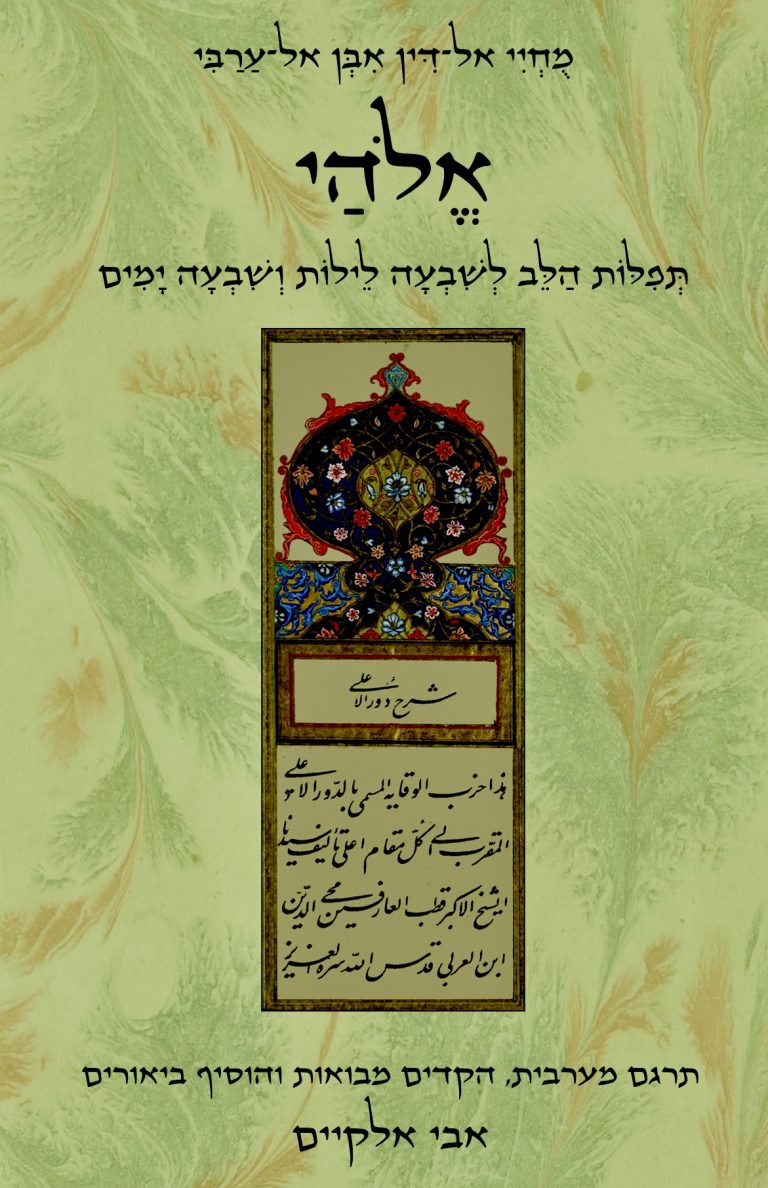 מֻחְיִי אל־דִּין אִבְּן אל־עַרַבִּי
אֱלֹהַי
תְּפִלּוֹת הַלֵּב לְשִׁבְעָה לֵילוֹת וְשִׁבְעָה יָמִים
شرح دور الاعلى
هذا حزب الوقايه المسمى بالدّور الاعلى
المقرّب الى كلّ مقام اعلى تأليف سيدنا
الشيخ الاكبر قطب العارفين محي الدّين
ابن العربي قدس الله سره العزيز
תרגם מערבית, הקדים מבואות והוסיף ביאורים
אבי אלקיים